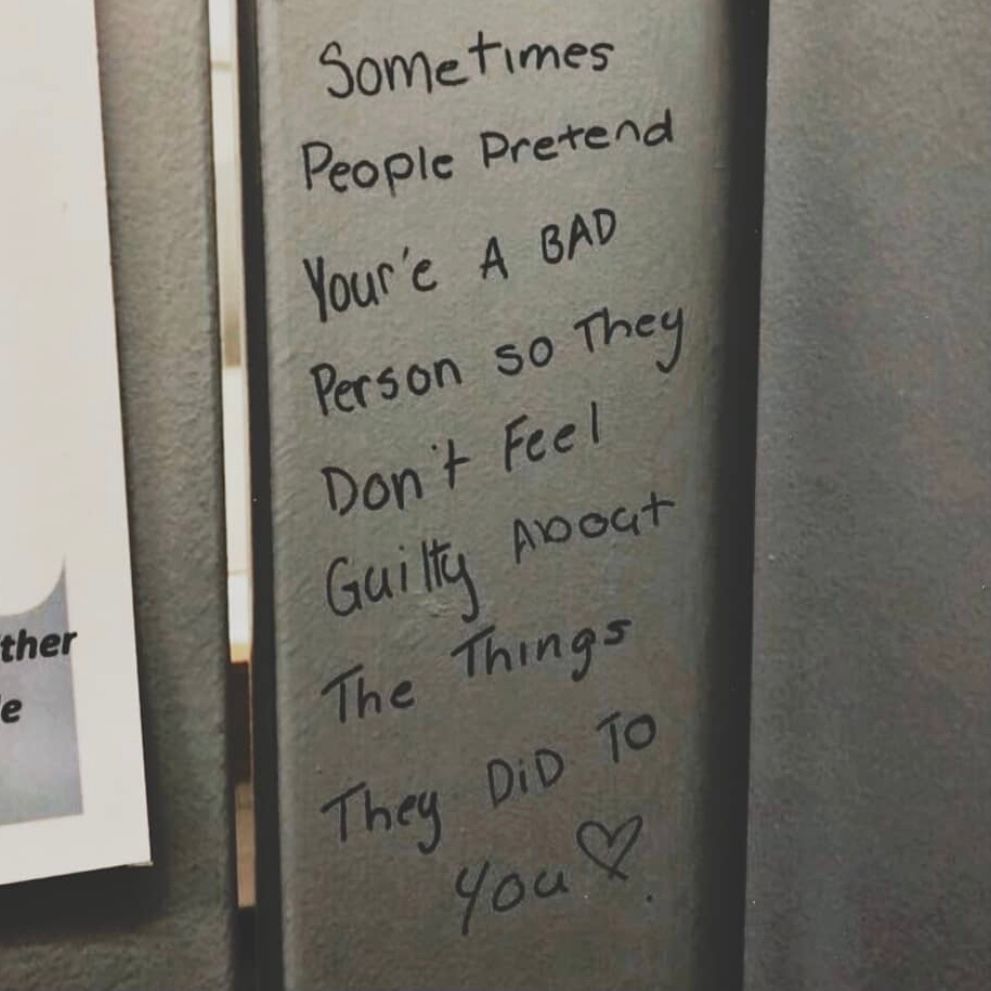 Sometimes
People Pretend
Your'e A BAD
Person so They
Don't Feel
Guilty About
The Things
They DiD To
You ♡.
ther
e